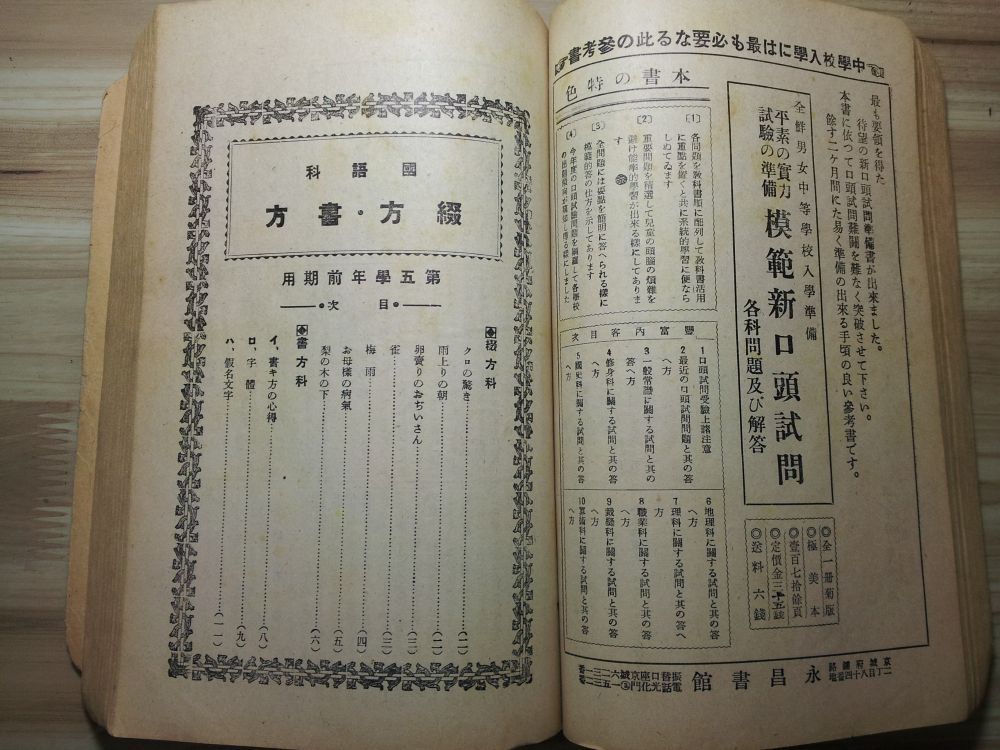 中學校入學には最も必要なる此の參考書
最も要領を得た
待望の新口頭試問準備書が出來ました。
本書に依つて口頭試問難關を難なく突破させて下さい。
餘す二ケ月間にた易く準備の出來る手頃の良い參考書です。
全鮮男女中等學校入學準備
平素の實力
試驗の準備
模範新口頭試問
各科問題及び解答
◎全一册菊版
◎極美本
◎壹百七拾餘頁
◎定價金三十五錢
◎送料六錢
本書の特色
〔1〕各問題を教科書順に配列して教科書活用
に重點を置くと共に系統的學習に便なら
しめてゐます
〔2〕重要問題を精選して兒童の頭腦の煩雜を
避け能率的學習が出來る樣にしてありま
す
〔3〕全問題には要點を簡明に答へられる樣に
模範的答の仕方を示してあります
〔4〕今年度の口頭試驗問題を網羅して各學校
の出題傾向が窺知し得る樣にしました
豐富內容目次
1 口頭試問受驗上諸注意
2 最近の口頭試問問題と其の答
へ方
3 一般常識に關する試問と其の
答へ方
4 修身科に關する試問と其の答
へ方
5 國史科に關する試問と其の答
へ方
6 地理科に關する試問と其の答
へ方
7 理科に關する試問と其の答へ
方
8 職業科に關する試問と其の答
へ方
9 裁縫科に關する試問と其の答
へ方
10 算術科に關する試問と其の答
へ方
京城府鍾路
二丁目八十四番地
永昌書館
國語科
綴方・書方
第五學年前期用
目次
◆綴方科
クロの驚き……(一)
雨上りの朝……(二)
卵賣りのおぢいさん……(三)
雀……(三)
梅雨……(四)
お母樣の病氣……(五)
梨の木の下……(六)
◆書方科
イ、書キ方の心得……(八)
ロ、字體……(九)
ハ、假名文字……(一一)